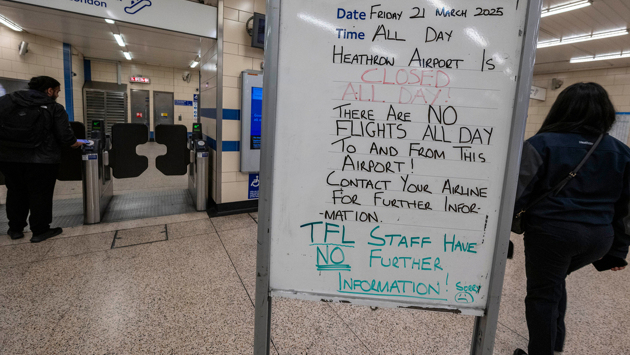 ondon
Date FRIDAY 21 MARCH 2025
Time ALL DAY
HEATHROW AIRPORT IS
CLOSED
ALL DAY!
THERE ARE NO
FLIGHTS ALL DAY
TO AND FROM THIS
AIRPORT!
CONTACT YOUR AIRLINE
FOR FURTHER INFOR-
-MATION.
TFL STAFF HAVE
NO FURTHER
INFORMATION! SORRY